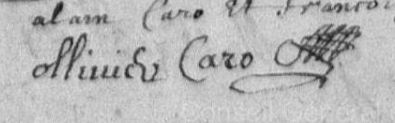 alain Caro Et francoi
ollivier Caro